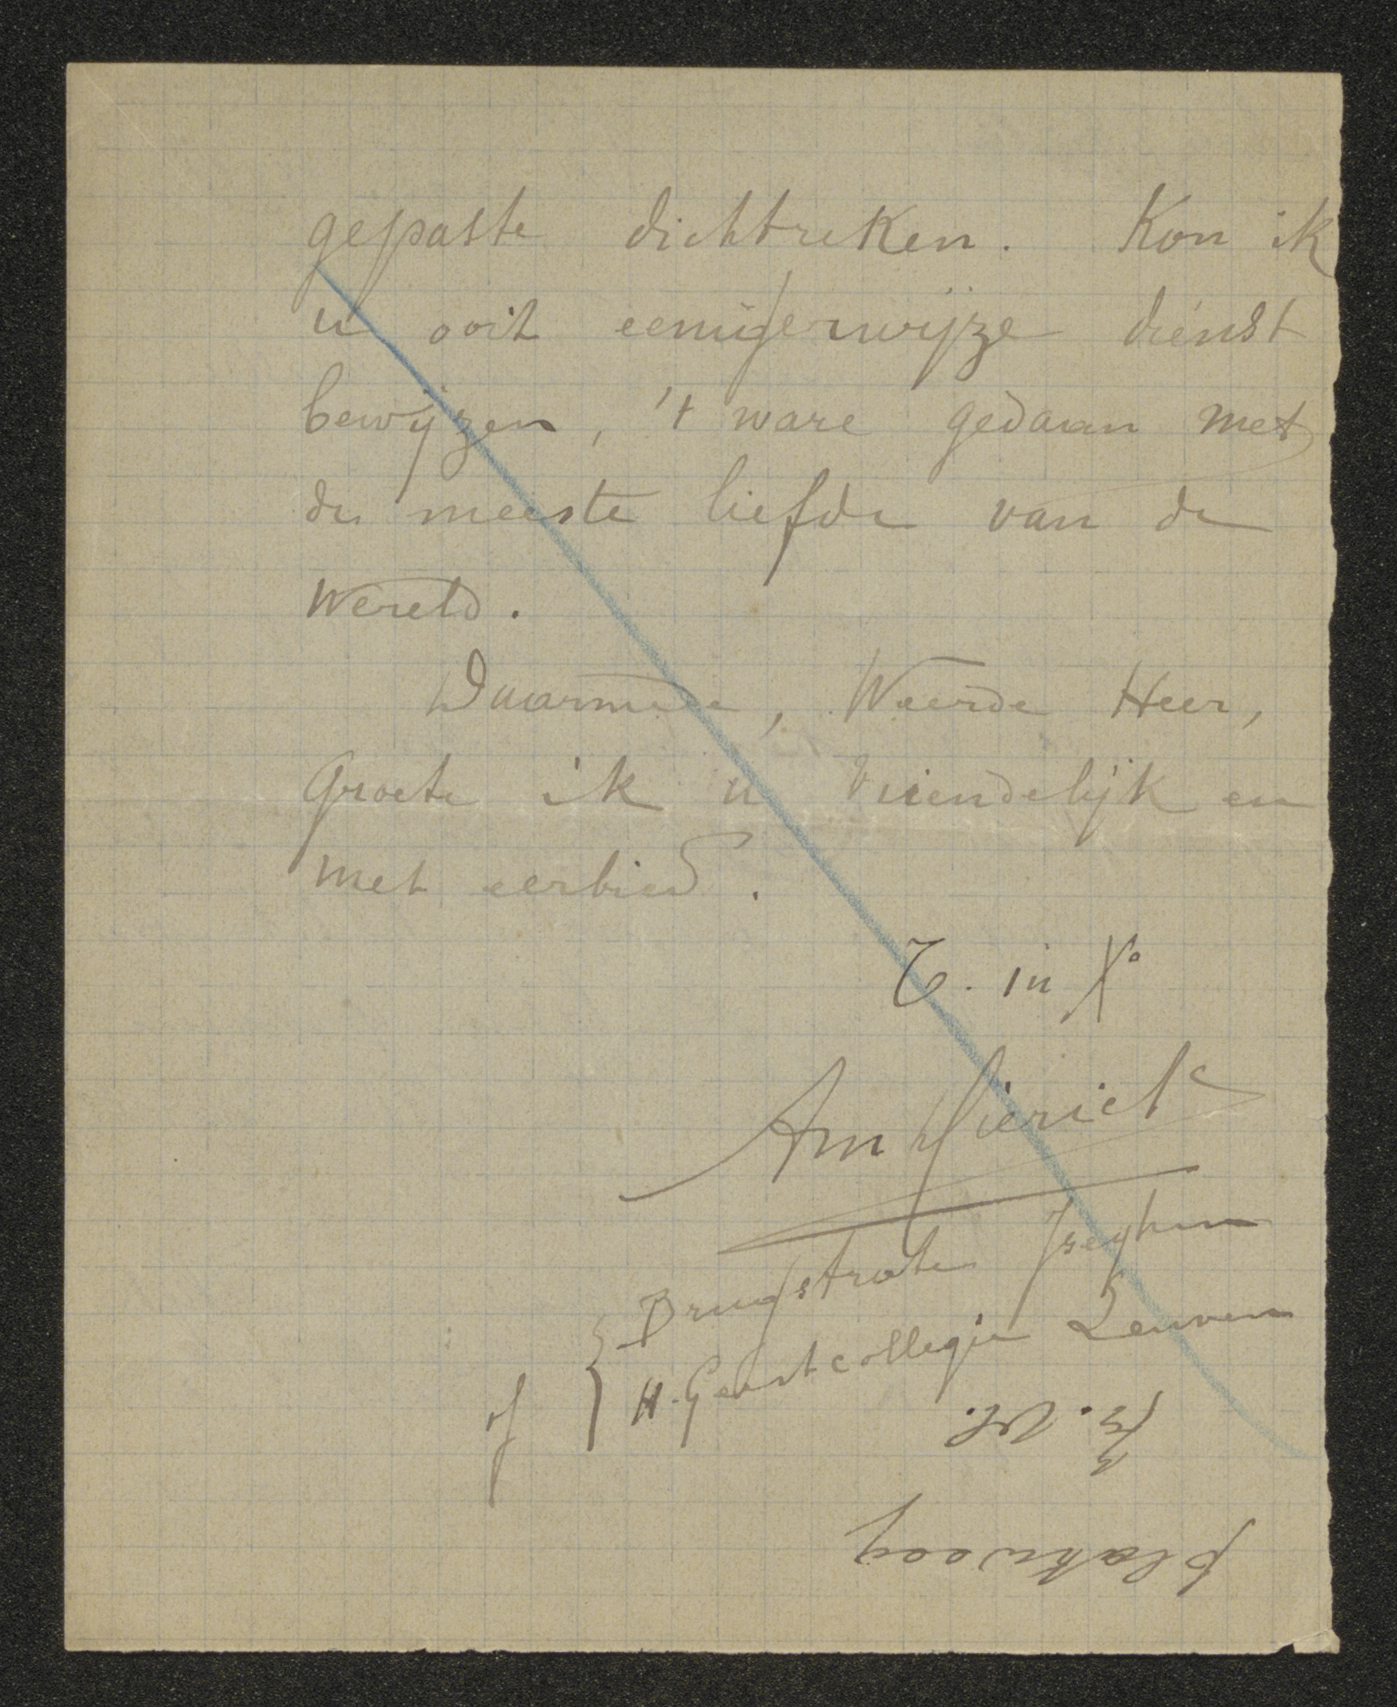 gepaste dichtreken. Kon ik
u ooit eenigerwijze dienst
bewijzen, 't ware gedaan met
de meeste liefde van de
Wereld.
Daarmede, Weerde Heer,
Groete ik u vriendelijk en
met eerbied.
T. in Xº
Am Mierick
Brugstrate Iseghem
of { H. Geestcollegie Leuven
plakweeg